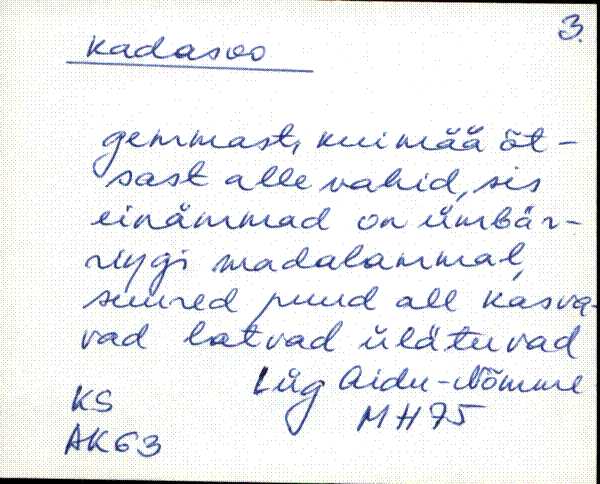 3.
kadasoo
gemmast, kui mää õt-
sast alle vahid, sis
einämmad on ümbär-
ringi madalammal,
suured puud all kasva-
vad latvad ülätuvad
Lüg Aidu-Nõmme
KS MH75
AK63